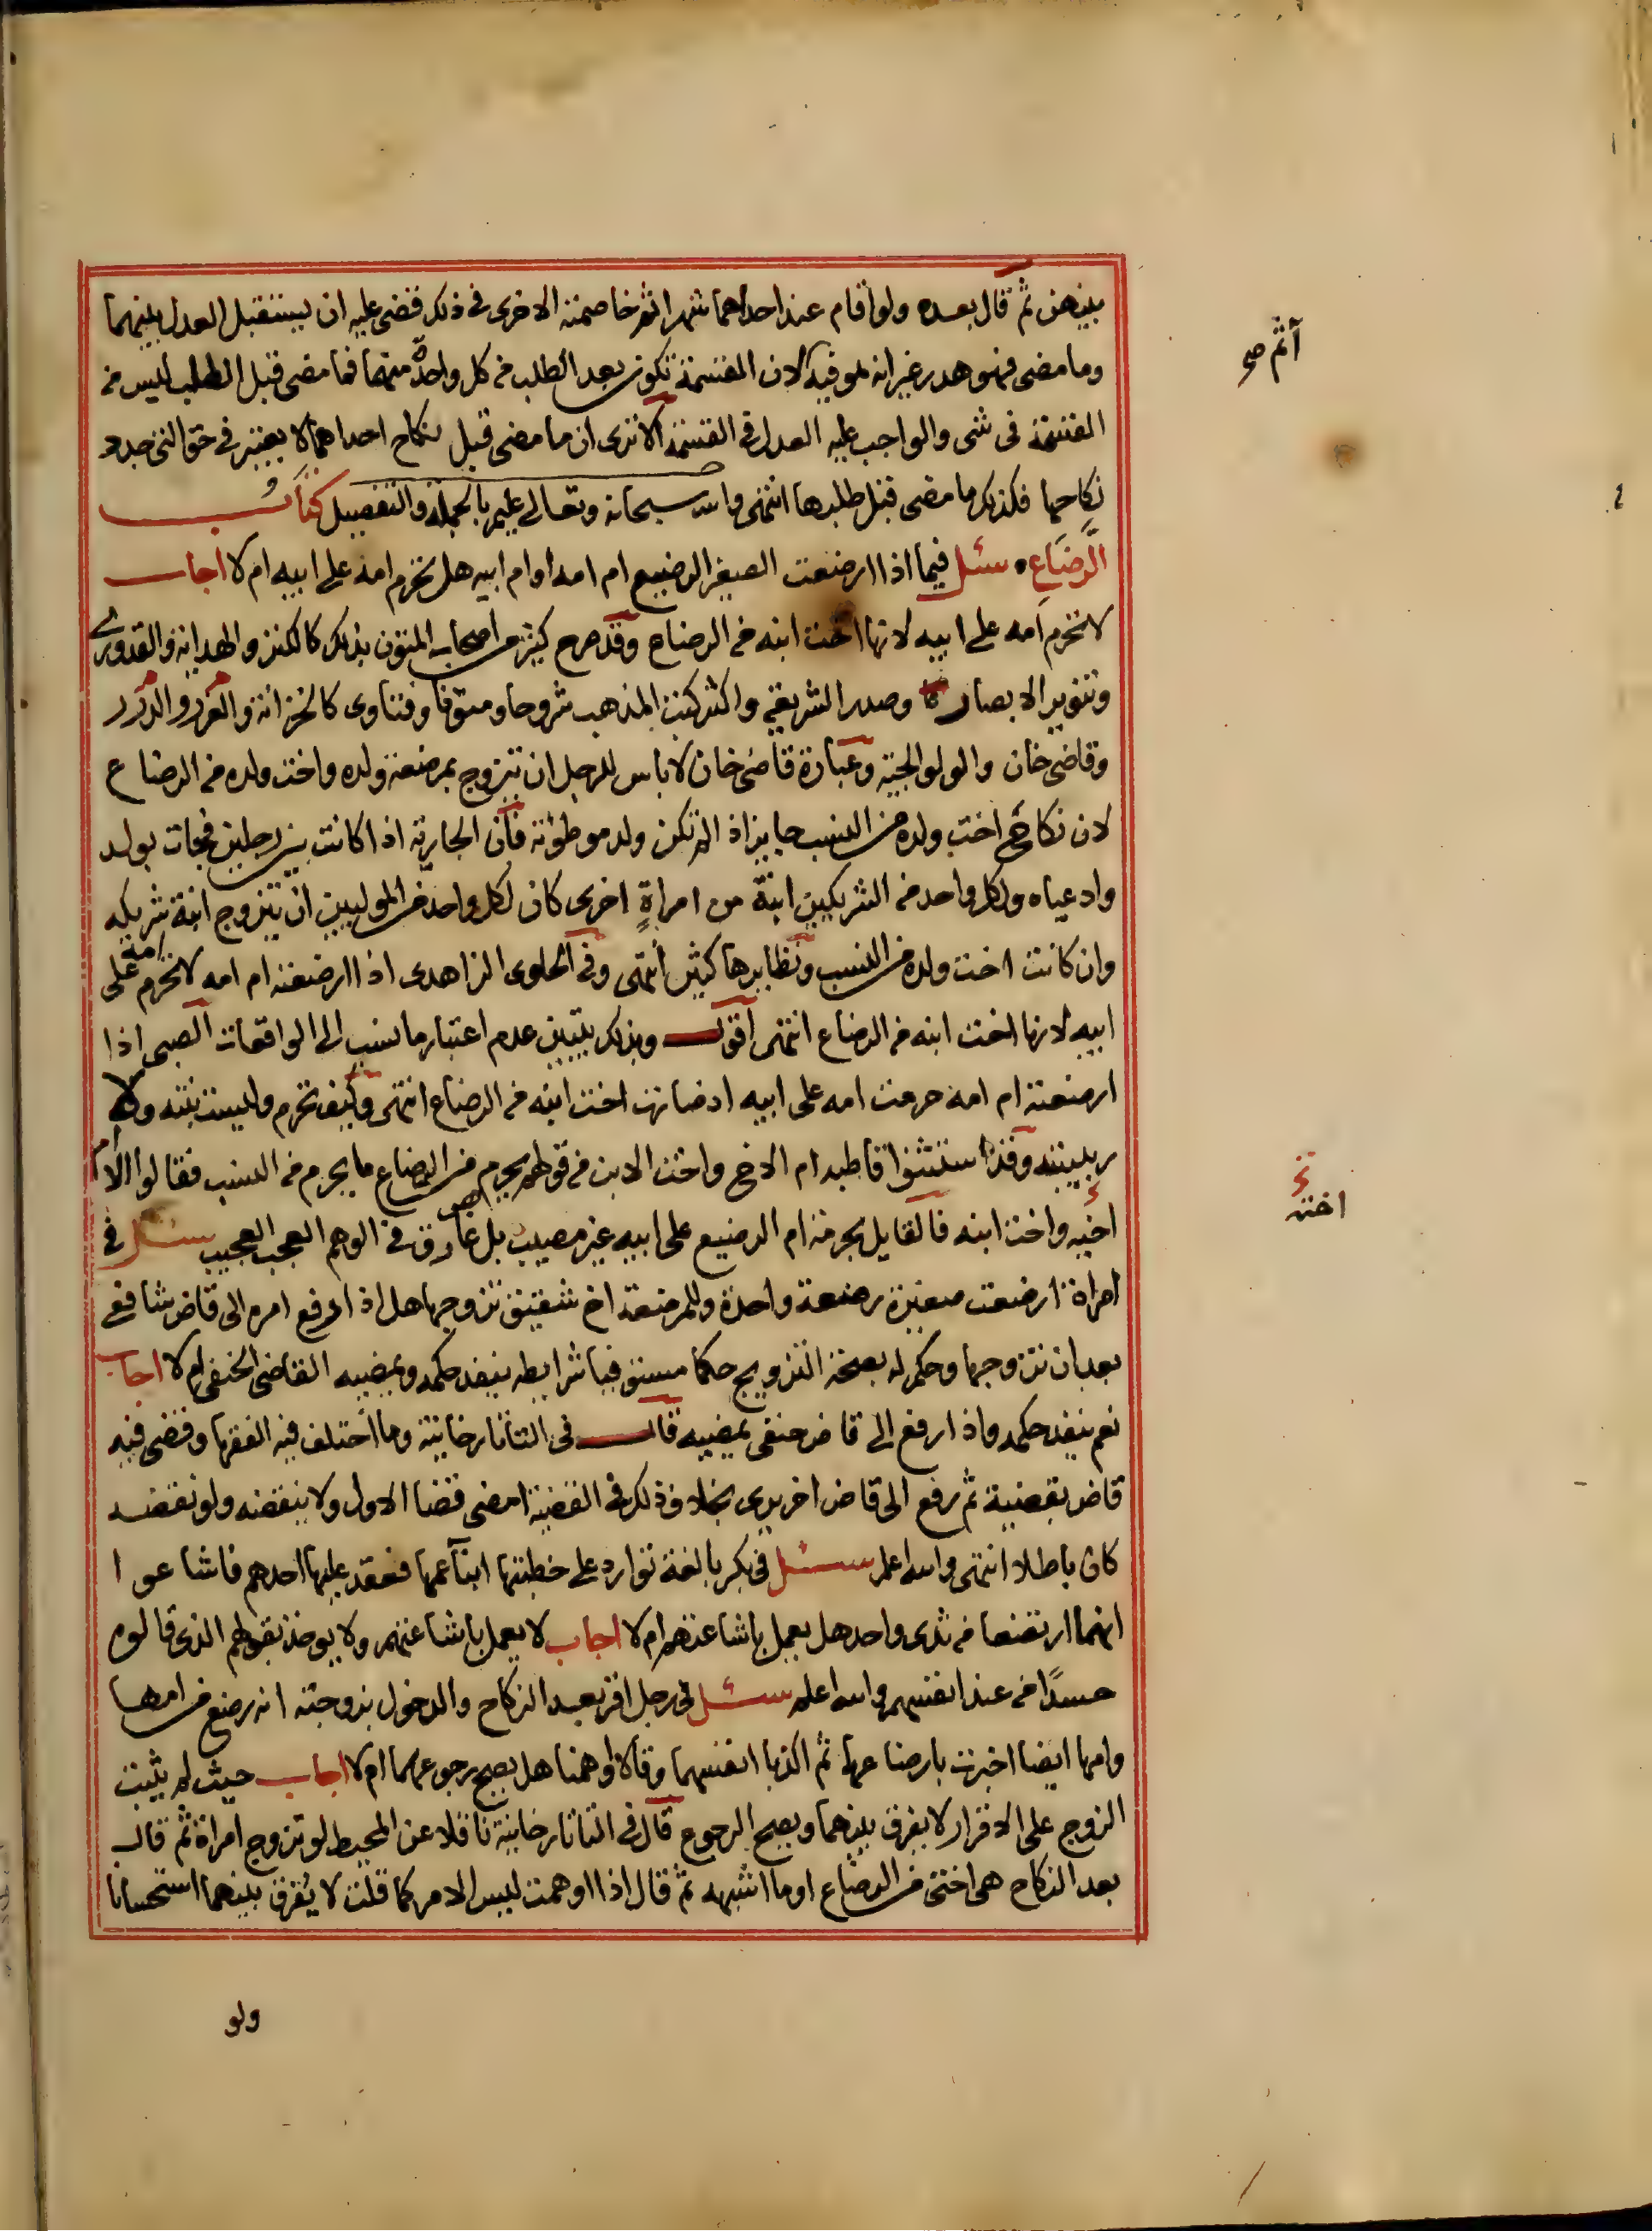 بينهن ثم قال بعده ولو اقام عند احداهما شهرا ثم خاصمته الاخرى في ذلك قضى عليه ان يستقبل العدل بينهما
وما مضى فهو هدر غير انه هو فيه لان القسمة تكون بعد الطلب من كل واحدة منهما فما مضى قبل الطلب ليس من
آثم صح
القسمة في شى والواجب عليه العدل في القسمة الا ترى ان ما مضى قبل نكاح احداهما لا يعتبر في حق التي جدد
نكاحها فكذلك ما مضى قبل طلبها انتهى والله سبحانه وتعالى عليم بالجملة والتفصيل كتاب
الرضاع سئل فيما اذا ارضعت الصغير الرضيع ام امه او ام ابيه هل تحرم امه على ابيه ام لا اجاب
لا تحرم امه على ابيه لانها اخت ابنه من الرضاع وقد صرح كثير من اصحاب المتون بذلك كالكنز والهداية والقدوري
وتنوير الابصار وصدر الشريعة واكثر كتب المذهب شروحا ومتونا وفتاوى كالخزانة والغرر والدرر
وقاضي خان والولوالجية وعبارة قاضي خان لا باس للرجل ان يتزوج بمرضعة ولده واخت ولده من الرضاع
لان نكاح اخت ولده من النسب جايز اذا لم تكن ولد موطوئته فان الجارية اذا كانت بين رجلين فجات بولد
وادعياه ولكل واحد من الشريكين ابنة من امراة اخرى كان لكل واحد من الموليين ان يتزوج ابنة شريكه
وان كانت اخت ولده من النسب ونظايرها كثير انتهى وفي الحاوى الزاهدى اذا ارضعته ام امه لا تحرم امه على
ابيه لانها اخت ابنه من الرضاع انتهى اقول وبذلك يتبين عدم اعتبار ما نسب الى الواقعات الصبى اذا
ارضعته ام امه حرمت امه على ابيه اذ صارت اخت ابنه من الرضاع انتهى وكيف تحرم وليست بنته ولا
ربيبته وقد استثنوا قاطبه ام الاخ واخت الابن من قولهم يحرم من الرضاع ما يحرم من النسب فقالوا الا ام
اخيه واخت ابنه فالقايل بحرمة ام الرضيع على ابيه غير مصيب بل غارق في الوهم العجب العجيب سئل في
اخته
امراة ارضعت صغيرة رضعة واحدة وللمرضعة اخ شقيق تزوجها هل اذا رفع امره الى قاض شافعي
بعد ان تزوجها وحكم له بصحة التزويج حكما مستوفيا شرايطه ينفذ حكمه ويمضيه القاضى الحنفى ام لا اجاب
نعم ينفذ حكمه واذا رفع الى قاض حنفى يمضيه قال في التاتارخانية وما اختلف فيه الفقها وقضى فيه
قاض بقضية ثم رفع الى قاض اخر يرى بخلاف ذلك في القضية امضى قضا الاول ولا ينقضه ولو نقضه
كان باطلا انتهى والله اعلم سئل في بكر بالغة توارد على خطبتها ابنآ عمها فعقد عليها احدهم فاشاعوا
انهما ارتضعا من ثدى واحد هل يعمل باشاعتهم ام لا اجاب لا يعمل باشاعتهم ولا يوخذ بقولهم الذى قالوه
حسدًا من عند انفسهم والله اعلم سئل في رجل اقر بعد النكاح والدخول بزوجته انه رضع من امها
وامها ايضا اخبرت بارضاعها ثم اكذبا انفسهما وقالا اوهمنا هل يصح رجوعهما ام لا اجاب حيث لم يثبت
الزوج على الاقرار لا يفرق بينهما ويصح الرجوع قال في التاتارخانية ناقلا عن المحيط لو تزوج امراة ثم قال
بعد النكاح هى اختى من الرضاع او ما اشبهه ثم قال اذا اوهمت ليس الامر كما قلت لا يفرق بينهما استحسانا
ولو